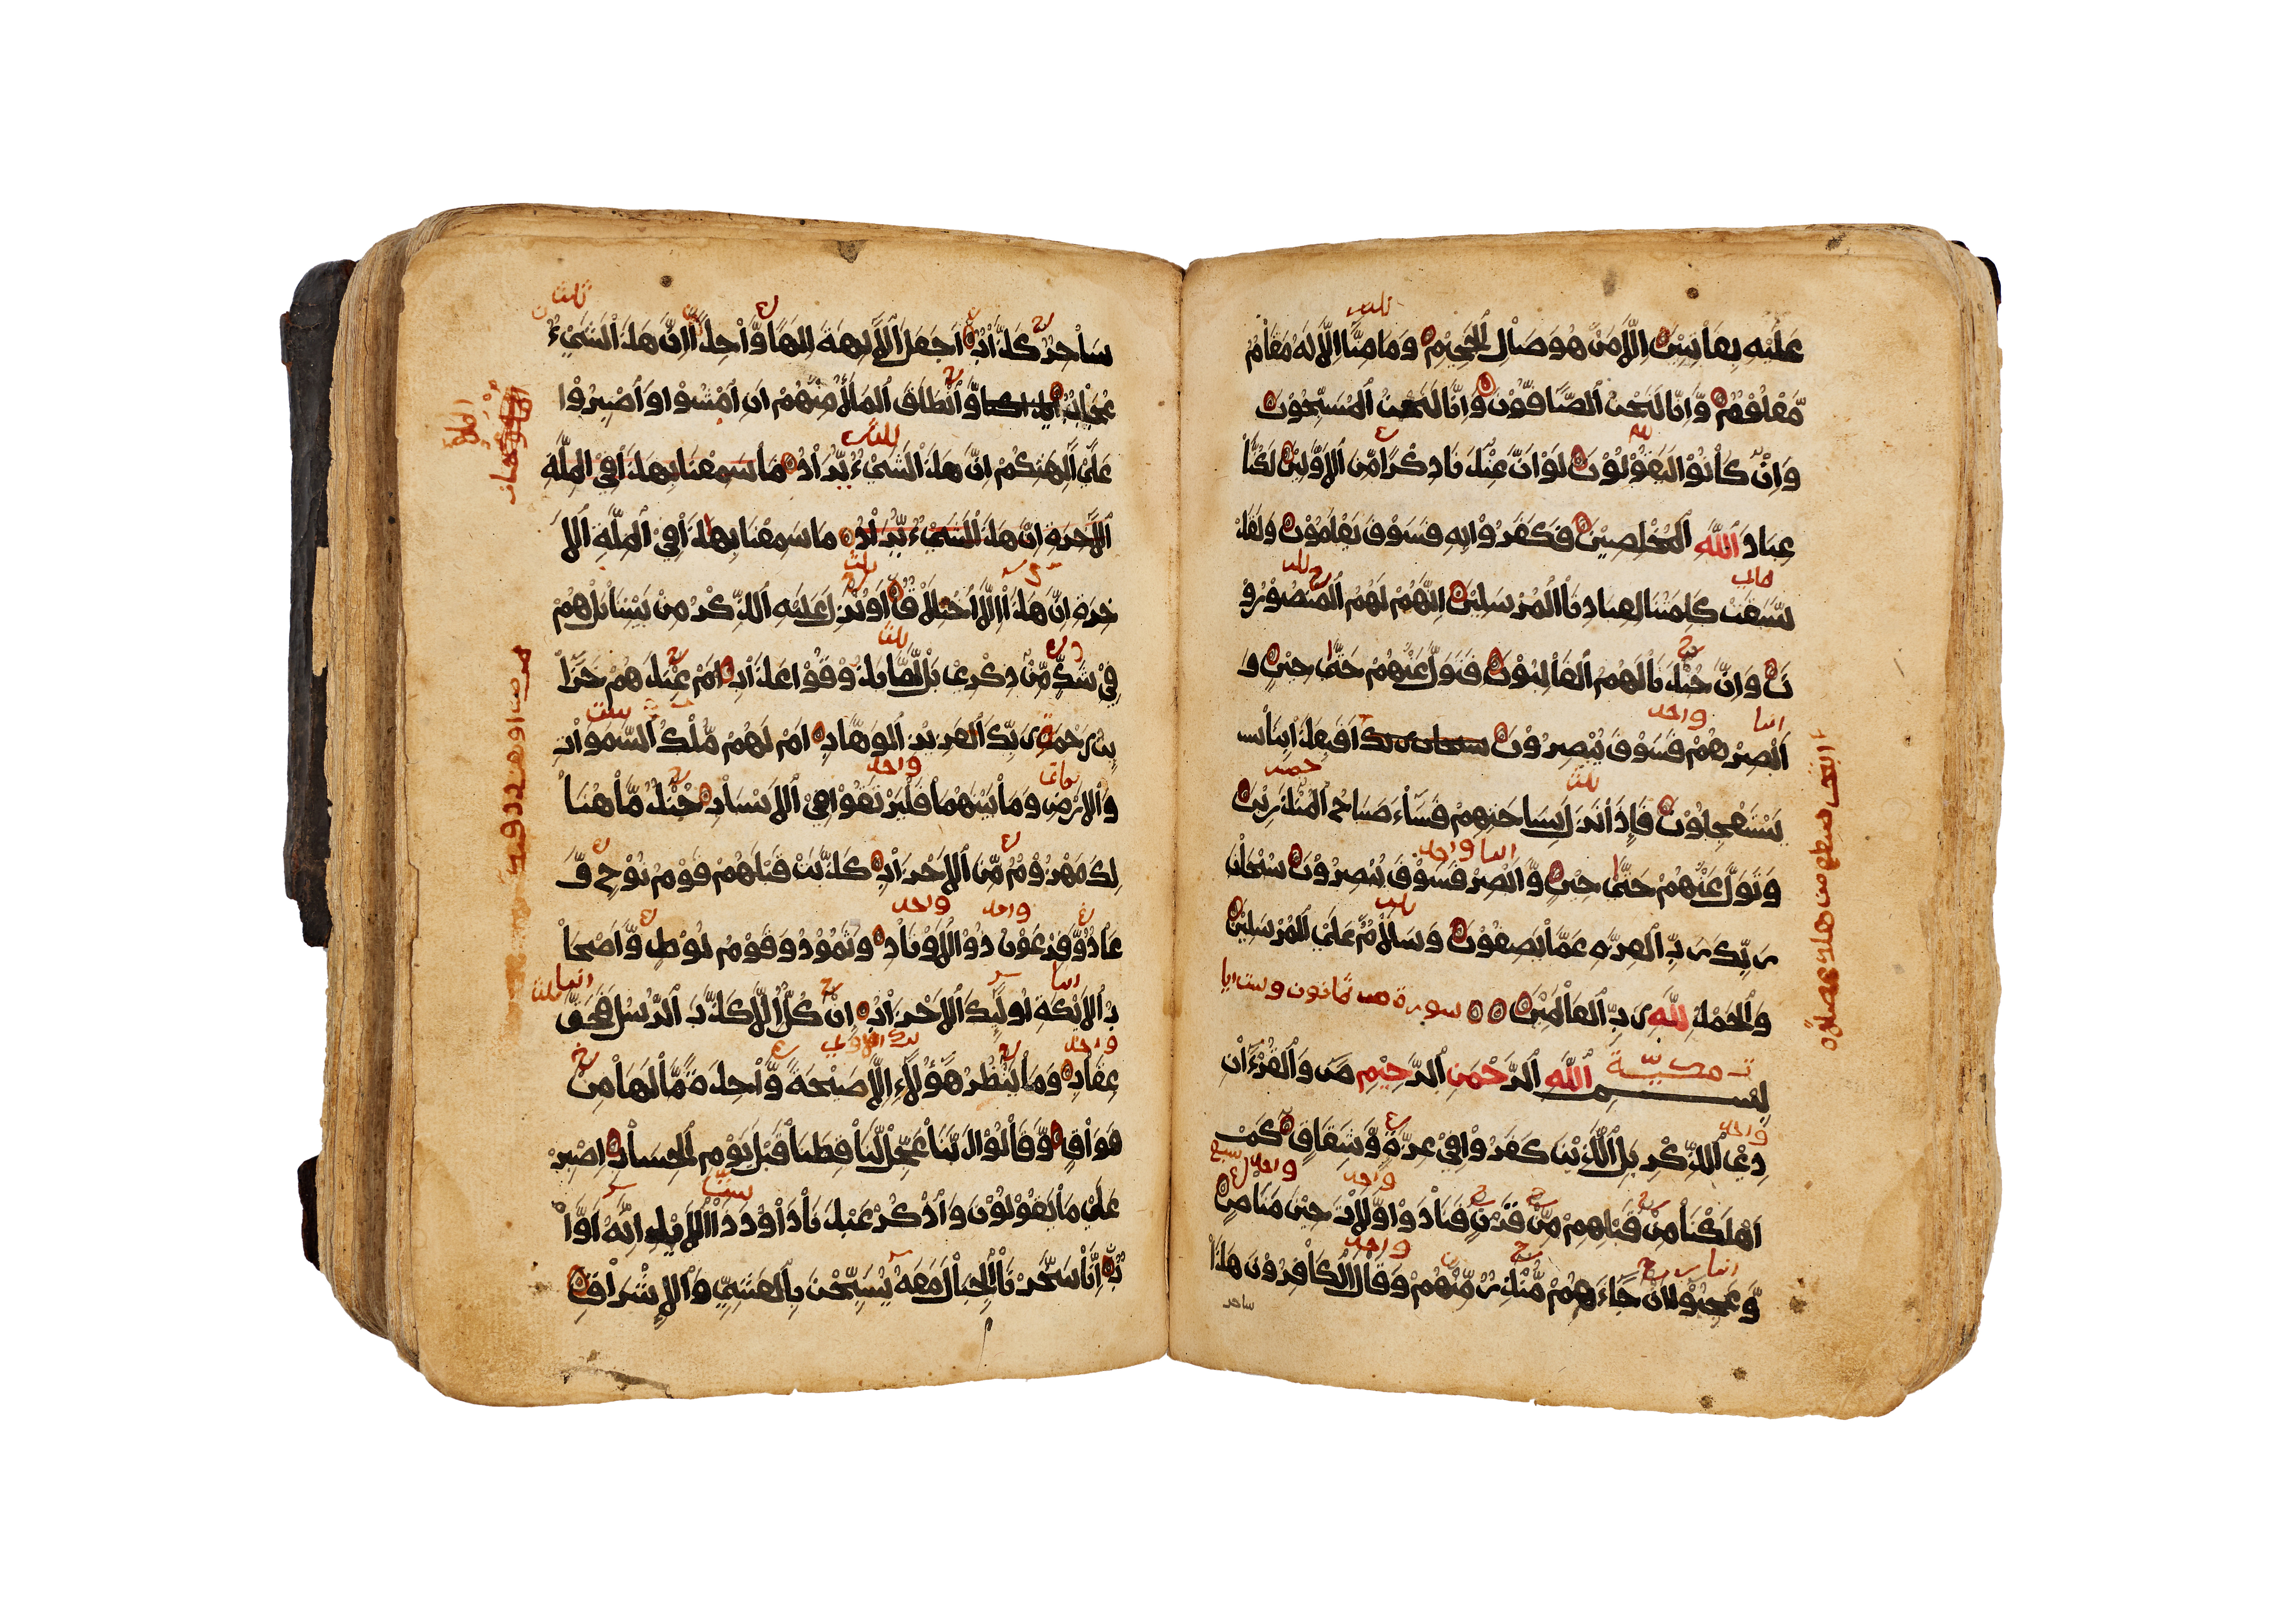 عَلَيْهِ بِفَاْتِنِيْنَ اِلَّا مَنْ هُوَ صَاْلِ الْجَحِيْمِ وَمَا مِنَّا اِلَّا لَهُ مَقَاْمٌ
مَّعْلُوْمٌ وَّاِنَّا لَنَحْنُ الصَّاۤفُّوْنَ وَاِنَّا لَنَحْنُ الْمُسَبِّحُوْنَ
وَاِنْ كَاْنُوْا لَيَقُوْلُوْنَ لَوْ اَنَّ عِنْدَنَا ذِكْرًا مِّنَ الْاَوَّلِيْنَ لَكُنَّاْ
عِبَادَ اللّٰهِ الْمُخْلَصِيْنَ فَكَفَرُوْا بِهِ فَسَوْفَ يَعْلَمُوْنَ وَلَقَدْ
سَبَقَتْ كَلِمَتُنَا لِعِبَادِنَا الْمُرْسَلِيْنَ اِنَّهُمْ لَهُمُ الْمَنْصُوْرُوْ
نَ وَاِنَّ جُنْدَنَا لَهُمُ الْغَاْلِبُوْنَ فَتَوَلَّ عَنْهُمْ حَتّٰى حِيْنٍ وَ
اَبْصِرْهُمْ فَسَوْفَ يُبْصِرُوْنَ سبحان ربك اَفَبِعَذَاْبِنَاْ
يَسْتَعْجِلُوْنَ فَاِذَا نَزَلَ بِسَاحَتِهِمْ فَسَاۤءَ صَبَاحُ الْمُنْذَرِيْنَ
وَتَوَلَّ عَنْهُمْ حَتّٰى حِيْنٍ وَّاَبْصِرْ فَسَوْفَ يُبْصِرُوْنَ سُبْحٰنَ
رَبِّكَ رَبِّ الْعِزَّةِ عَمَّا يَصِفُوْنَ وَسَلَاْمٌ عَلَى الْمُرْسَلِيْنَ
وَالْحَمْدُ لِلّٰهِ رَبِّ الْعَاْلَمِيْنَ سورة ص ثمانون وست ايا
ت مكيّة بِسْمِ اللّٰهِ الرَّحْمٰنِ الرَّحِيْمِ صۤ وَالْقُرْءَاْنِ
ذِى الذِّكْرِ بَلِ الَّذِيْنَ كَفَرُوْا فِيْ عِزَّةٍ وَّشِقَاقٍ كَمْ
اَهْلَكْنَا مِنْ قَبْلِهِمْ مِّنْ قَرْنٍ فَنَادَوْا وَّلَاْتَ حِيْنَ مَنَاْصٍ
وَّعَجِبُوْا اَنْ جَاۤءَهُمْ مُّنْذِرٌ مِّنْهُمْ وَقَالَ الْكَاْفِرُوْنَ هٰذَا
ساحر
سَاْحِرٌ كَذَّاْبٌ اَجَعَلَ الْاٰلِهَةَ اِلٰهًا وَّاْحِدًا اِنَّ هٰذَا لَشَيْءٌ
عُجَاْبٌ وَّانْطَلَقَ الْمَلَأُ مِنْهُمْ اَنِ امْشُوْا وَاصْبِرُوْا
عَلٰى اٰلِهَتِكُمْ اِنَّ هٰذَا لَشَيْءٌ يُّرَاْدُ مَا سَمِعْنَا بِهٰذَا فِي الْمِلَّةِ
الْاٰخِرَةِ اِنَّ هٰذَا لَشَيْءٌ يُّرَاْدُ مَا سَمِعْنَا بِهٰذَا فِي الْمِلَّةِ الْاٰ
خِرَةِ اِنْ هٰذَا اِلَّا اخْتِلَاْقٌ اَؤُنْزِلَ عَلَيْهِ الذِّكْرُ مِنْ بَيْنِنَا بَلْ هُمْ
فِيْ شَكٍّ مِّنْ ذِكْرِيْ بَلْ لَّمَّا يَذُوْقُوْا عَذَاْبِ اَمْ عِنْدَهُمْ خَزَاۤ
ئِنُ رَحْمَةِ رَبِّكَ الْعَزِيْزِ الْوَهَّابِ اَمْ لَهُمْ مُّلْكُ السَّمٰوَاْتِ
وَالْاَرْضِ وَمَاْ بَيْنَهُمَا فَلْيَرْتَقُوْا فِى الْاَسْبَاْبِ جُنْدٌ مَّاْ هُنَاْ
لِكَ مَهْزُوْمٌ مِّنَ الْاَحْزَاْبِ كَذَّبَتْ قَبْلَهُمْ قَوْمُ نُوْحٍ وَّ
عَاْدٌ وَّفِرْعَوْنُ ذُوْ الْاَوْتَاْدِ وَثَمُوْدُ وَقَوْمُ لُوْطٍ وَّاَصْحَاْ
بُ الْاَيْكَةِ اُولٰۤئِكَ الْاَحْزَاْبُ اِنْ كُلٌّ اِلَّا كَذَّبَ الرُّسُلَ فَحَقَّ
عِقَاْبِ وَمَاْ يَنْظُرُ هٰۤؤُلَاۤءِ اِلَّا صَيْحَةً وَّاْحِدَةً مَّا لَهَا مِنْ
فَوَاْقٍ وَّقَاْلُوْا رَبَّنَاْ عَجِّلْ لَّنَاْ قِطَّنَاْ قَبْلَ يَوْمِ الْحِسَاْبِ اِصْبِرْ
عَلٰى مَاْ يَقُوْلُوْنَ وَاذْكُرْ عَبْدَنَاْ دَاْوٗدَ ذَاْ الْاَيْدِ اِنَّهُ اَوَّاْ
بٌ اِنَّاْ سَخَّرْنَاْ الْجِبَاْلَ مَعَهُ يُسَبِّحْنَ بِالْعَشِيِّ وَالْاِشْرَاْقِ